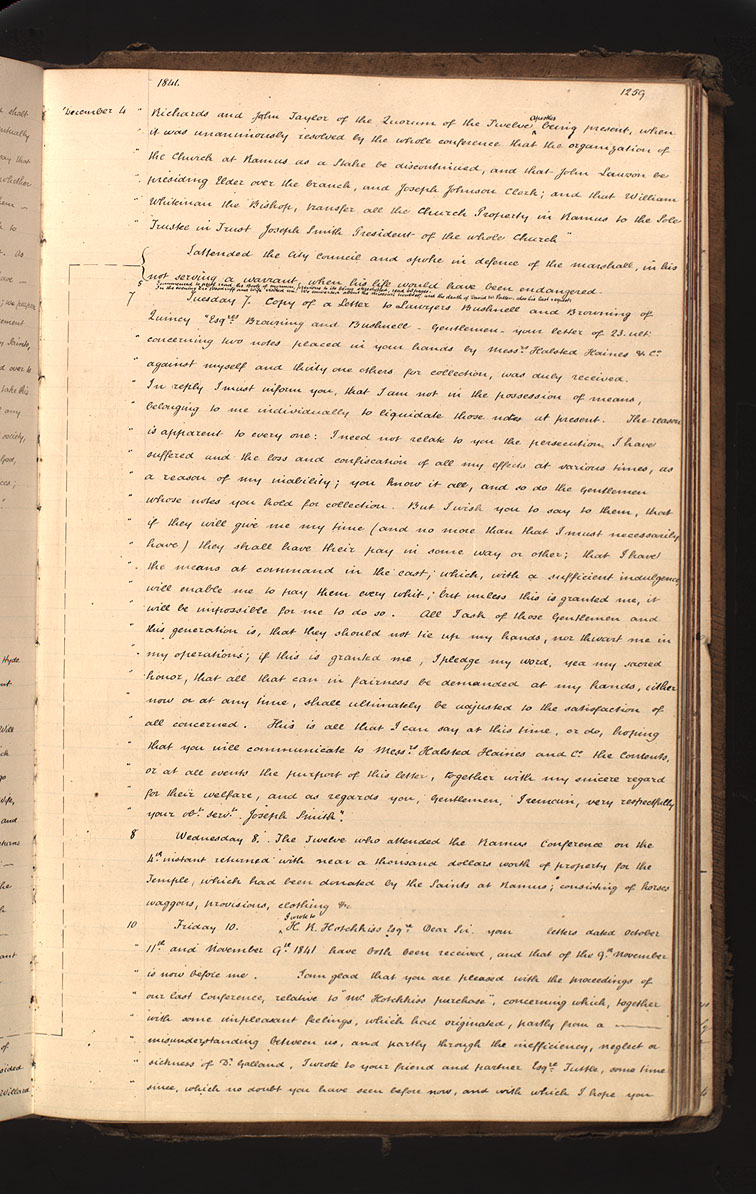 1841.
1259
December 4 " Richards and John Taylor of the Quorum of the Twelve Apostles being present, when
" it was unanimously resolved by the whole conference that the organization of
" the Church at Ramus as a Stake be discontinued, and that John Lawson be
" presiding Elder over the branch, and Joseph Johnson Clerk; and that William
" Whiteman the Bishop, transfer all the Church Property in Ramus to the Sole
" Trustee in Trust Joseph Smith President of the whole Church"
I attended the City Council and spoke in defence of the marshall, in his
not serving a warrant, when his life would have been endangered.
5 I commenced to proof read the Book of Mormon, previous to its being stereotyped, read 54 pages.
In the evening
7 Tuesday 7. Copy of a Letter to Lawyers Bushnell and Browning of
Quincy "Esqres Browning and Bushnell - Gentlemen - your letter of 23. ult.
" concerning two notes placed in your hands by Messrs Halsted Haines & Co
" against myself and thirty one others for collection, was duly received.
" In reply I must inform you, that I am not in the possession of means,
" belonging to me individually to liquidate those notes at present. The reason
" is apparent to every one: I need not relate to you the persecution I have
" suffered and the loss and confiscation of all my effects at various times, as
" a reason of my inability; you know it all, and so do the Gentlemen
" whose notes you hold for collection. But I wish you to say to them, that
" if they will give me my time (and no more than that I must necessarily
" have) they shall have their pay in some way or other; that I have
" the means at command in the east, which, with a sufficient indulgence,
" will enable me to pay them every whit; but unless this is granted me, it
" will be impossible for me to do so. All I ask of those Gentlemen and
" this generation is, that they should not tie up my hands, nor thwart me in
" my operations; if this is granted me, I pledge my word, yea my sacred
" honor, that all that can in fairness be demanded at my hands, either
" now or at any time, shall ultimately be adjusted to the satisfaction of
" all concerned. This is all that I can say at this time, or do, hoping
" that you will communicate to Messrs Halsted Haines and Co. the Contents,
" or at all events the purport of this letter, together with my sincere regard
" for their welfare, and as regards you, Gentlemen, I remain, very respectfully
" your obt. servt. Joseph Smith".
8 Wednesday 8. The Twelve who attended the Ramus Conference on the
4th instant returned with near a thousand dollars worth of property for the
Temple, which had been donated by the Saints at Ramus; consisting of horses
waggons, provisions, clothing &c
10 Friday 10. I wrote to H. R. Hotchkiss Esqre Dear Sir. your letters dated October
" 11th and November 9th 1841 have both been received, and that of the 9th November
" is now before me. I am glad that you are pleased with the proceedings of
" our last Conference, relative to "Mr. Hotchkiss purchase", concerning which, together
" with some unpleasant feelings, which had originated, partly from a
" misunderstanding between us, and partly through the inefficiency, neglect or
" sickness of Dr. Galland, I wrote to your friend and partner Esqre Tuttle, some time
" since, which no doubt you have seen before now, and with which I hope you